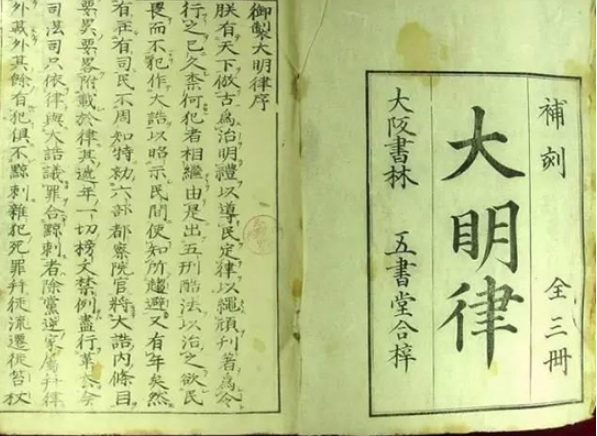 補刻 全三冊
大明律
大阪書林 五書堂合梓
御製大明律序
朕有天下倣古爲治明禮以導民定律以繩頑刊著爲令
行之已久柰何犯者相繼由是出五刑酷法以治之欲民
畏而不犯作大誥以昭示民間使知所趨避又有年矣然
在有司民不周知特勑六部都察院官將大誥内條目
要畧附載於律其遞年一切榜文禁例盡行革去今
法司只依律與大誥議罪合黥刺者除黨逆家屬并律
載外其餘有犯俱不黥刺雜犯死罪并徒流遷徙笞杖